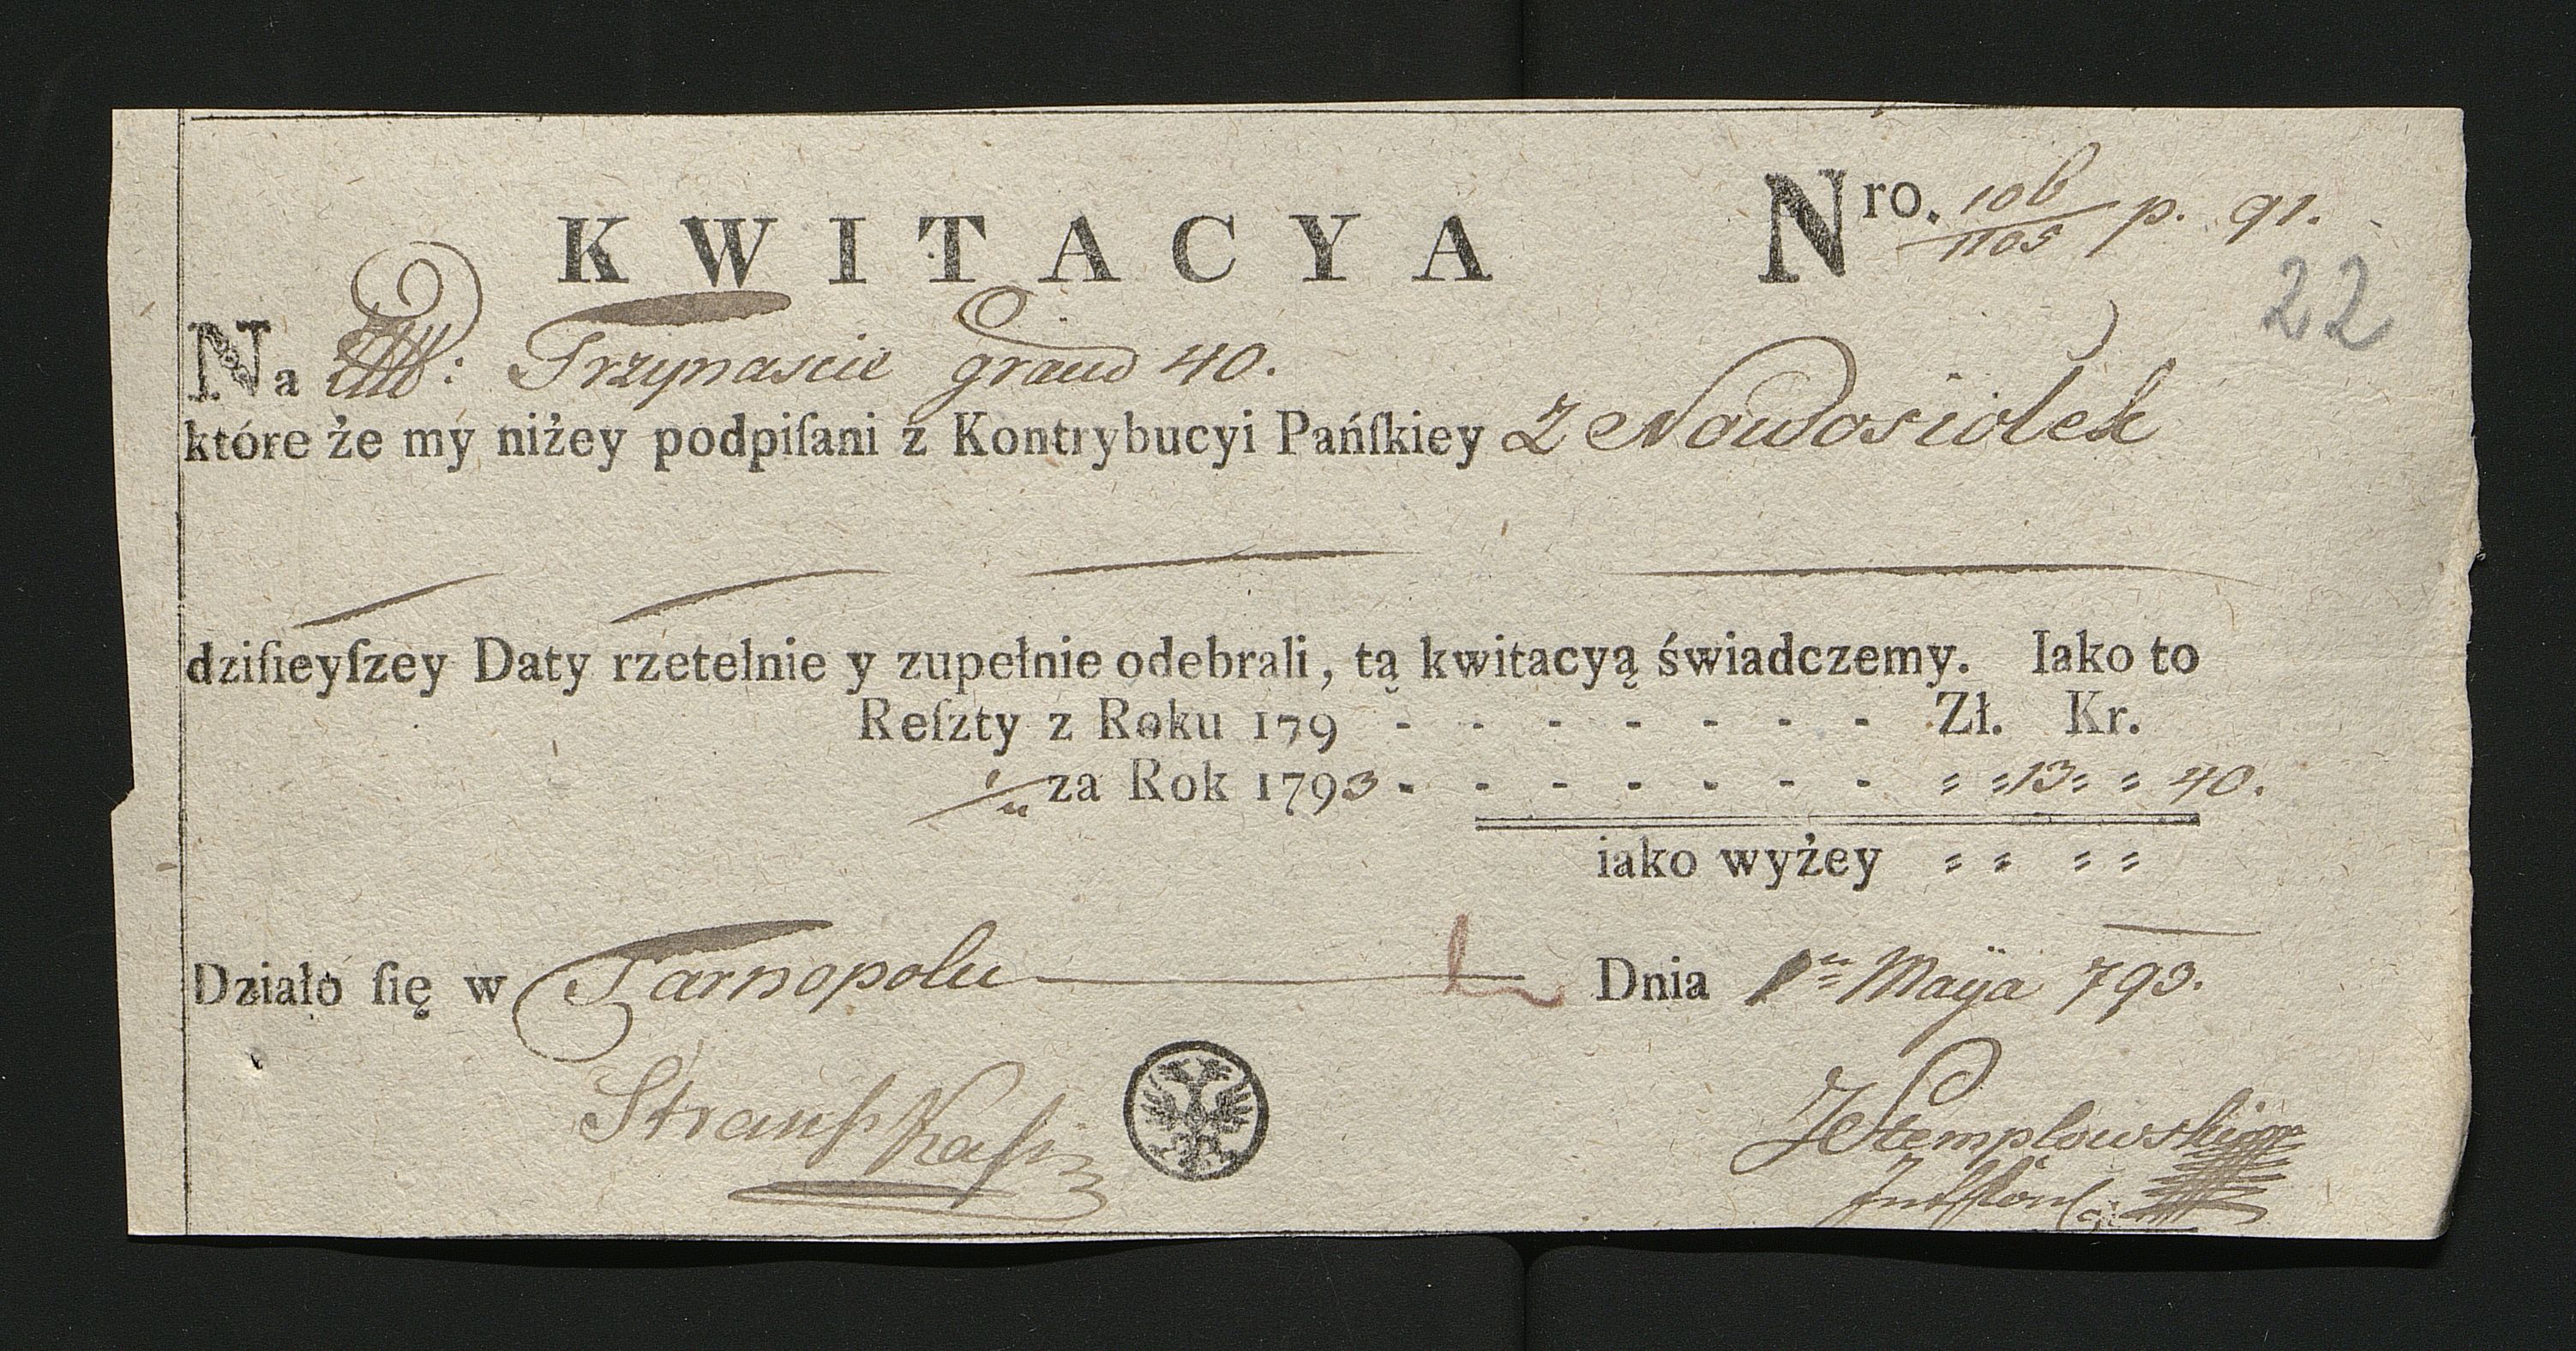 KWITACYA Nro. 106/1105 p. 91.
22
Na Trzynascie graud 40.
które że my niżey podpiſani z Kontrybucyi Pańſkiey z Nowosiolek
dziſieyſzey Daty rzetelnie y zupełnie odebrali, tą kwitacyą świadczemy. Iako to
Reſzty z Roku 179 - - - - - - - Zł. Kr.
za Rok 1793 - - - - - - - 13 40.
iako wyżey
Działo ſię w Tarnopolu Dnia 1 Maÿa 793.
Strauß
Stemplowski